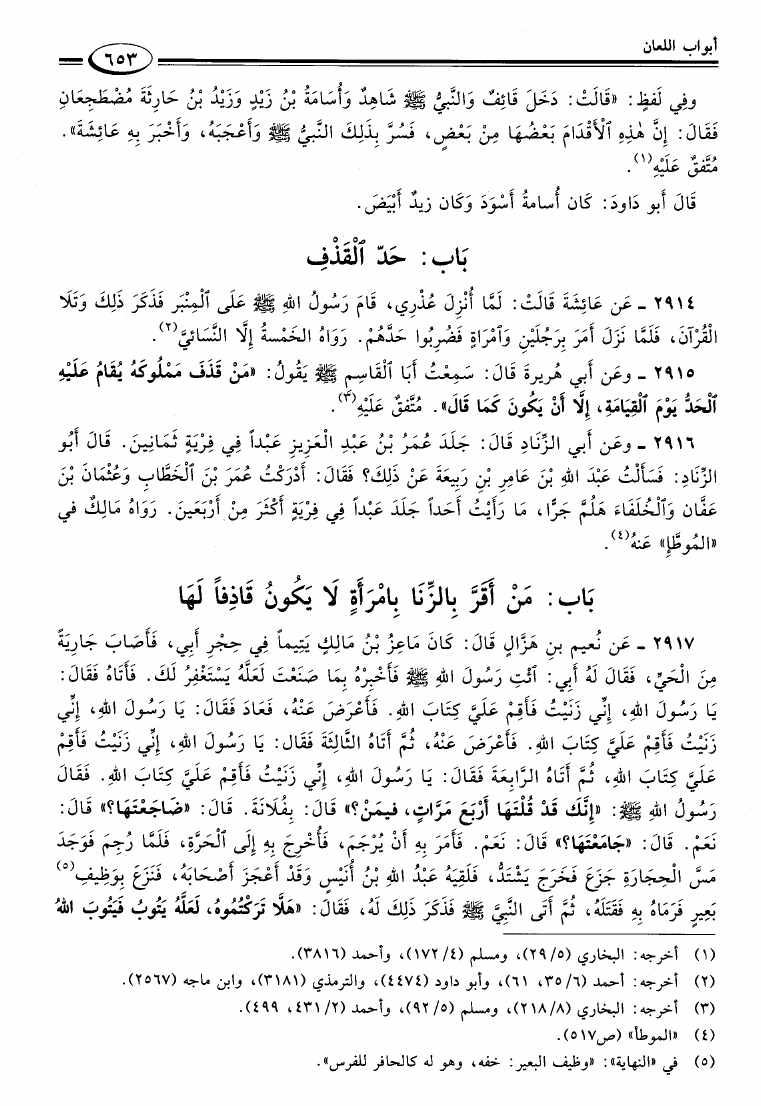 أبواب اللعان
٦٥٣
وفِي لَفظٍ: «قَالَتْ: دَخَلَ قَائِفٌ وَالنَّبِيُّ ﷺ شَاهِدٌ وَأُسَامَةُ بْنُ زَيْدٍ وَزَيْدُ بْنُ حَارِثَةَ مُضْطَجِعَانِ
فَقَالَ: إِنَّ هٰذِهِ ٱلْأَقْدَامَ بَعْضُهَا مِنْ بَعْضٍ، فَسُرَّ بِذَلِكَ النَّبِيُّ ﷺ وَأَعْجَبَهُ، وَأَخْبَرَ بِهِ عَائِشَةَ».
مُتَّفقٌ عَلَيْهِ(١).
قَالَ أَبو دَاودَ: كَان أُسامةُ أَسْوَدَ وَكَان زيدٌ أَبْيَضَ.
بَاب: حَدّ ٱلْقَذْفِ
٢٩١٤ ـ عَن عَائِشَةَ قَالَتْ: لَمَّا أُنْزِلَ عُذْرِي، قَامَ رَسُولُ اللهِ ﷺ عَلَى ٱلْمِنْبَرِ فَذَكَرَ ذَلِكَ وَتَلَا
القُرْآنَ، فَلَمَّا نَزَلَ أَمَرَ بِرَجُلَيْنِ وَٱمْرَأةٍ فَضُرِبُوا حَدَّهُمْ. رَوَاهُ الخَمْسةُ إِلَّا النَّسَائيَّ(٢).
٢٩١٥ ـ وعَن أَبي هُريرةَ قَالَ: سَمِعْتُ أَبَا القَاسِمِ ﷺ يَقُولُ: «مَنْ قَذَفَ مَمْلُوكَهُ يُقَامُ عَلَيْهِ
ٱلْحَدُّ يَوْمَ ٱلْقِيَامَةِ، إِلَّا أَنْ يَكُونَ كَمَا قَالَ». مُتَّفقٌ عَلَيْهِ(٣).
٢٩١٦ ـ وعَن أَبي الزِّنَادِ قَالَ: جَلَدَ عُمَرُ بْنُ عَبْدِ العَزِيزِ عَبْداً فِي فِرْيَةٍ ثَمَانِينَ. قَالَ أَبُو
الزِّنَادِ: فَسَأَلْتُ عَبْدَ اللهِ بْنَ عَامِرِ بْنِ رَبِيعَةَ عَنْ ذَلِكَ؟ فَقَالَ: أَدْرَكْتُ عُمَرَ بْنَ ٱلْخَطَّابِ وَعُثْمَانَ بْنَ
عَفَّان وَٱلْخُلَفَاءَ هَلُمَّ جَرًّا، مَا رَأَيْتُ أَحَداً جَلَدَ عَبْداً فِي فِرْيَةٍ أَكْثَرَ مِنْ أَرْبَعَينَ. رَوَاهُ مَالِكٌ في
«المُوطَّإِ» عَنهُ(٤).
بَاب: مَنْ أَقَرَّ بِالزِّنَا بِامْرَأَةٍ لَا يَكُونُ قَاذِفاً لَهَا
٢٩١٧ ـ عَن نُعيم بنِ هَزَّالٍ قَالَ: كَانَ مَاعِزُ بْنُ مَالِكٍ يَتِيماً فِي حِجْرِ أَبِي، فَأَصَابَ جَارِيَةً
مِنَ الْحَيِّ، فَقَالَ لَهُ أَبِي: ٱئْتِ رَسُولَ اللهِ ﷺ فَأَخْبِرْهُ بِمَا صَنَعْتَ لَعَلَّهُ يَسْتَغْفِرُ لَكَ. فَأَتَاهُ فَقَالَ:
يَا رَسُولَ اللهِ، إِنِّي زَنَيْتُ فَأَقِمْ عَلَيَّ كِتَابَ اللهِ. فَأَعْرَضَ عَنْهُ، فَعَادَ فَقَالَ: يَا رَسُولَ اللهِ، إِنِّي
زَنَيْتُ فَأَقِمْ عَلَيَّ كِتَابَ اللهِ. فَأَعْرَضَ عَنْهُ، ثُمَّ أَتَاهُ الثَّالِثَةَ فَقَال: يَا رَسُولَ اللهِ، إِنِّي زَنَيْتُ فَأَقِمْ
عَلَيَّ كِتَابَ اللهِ، ثُمَّ أَتَاهُ الرَّابِعَةَ فَقَالَ: يَا رَسُولَ اللهِ، إِنِّي زَنَيْتُ فَأَقِمْ عَلَيَّ كِتَابَ اللهِ. فَقَالَ
رَسُولُ اللهِ ﷺ: «إِنَّكَ قَدْ قُلْتَهَا أَرْبَعَ مَرَّاتٍ، فَبِمَنْ؟» قَالَ: بِفُلَانَةَ. قَالَ: «ضَاجَعْتَهَا؟» قَالَ:
نَعَمْ. قَالَ: «جَامَعْتَهَا؟» قَالَ: نَعَمْ. فَأَمَرَ بِهِ أَنْ يُرْجَمَ، فَأُخْرِجَ بِهِ إِلَى ٱلْحَرَّةِ، فَلَمَّا رُجِمَ فَوَجَدَ
مَسَّ الْحِجَارَةِ جَزَعَ فَخَرَجَ يَشْتَدُّ، فَلَقِيَهُ عَبْدُ اللهِ بْنُ أُنَيْسٍ وَقَدْ أَعْجَزَ أَصْحَابَهُ، فَنَزَعَ بِوَظِيفِ(٥)
بَعِيرٍ فَرَمَاهُ بِهِ فَقَتَلَهُ، ثُمَّ أَتَى النَّبِيَّ ﷺ فَذَكَرَ ذَلِكَ لَهُ، فَقَالَ: «هَلَّا تَرَكْتُمُوهُ، لَعَلَّهُ يَتُوبُ فَيَتُوبَ اللهُ
(١) أخرجه: البخاري (٢٩/٥)، ومسلم (١٧٢/٤)، وأحمد (٣٨١٦).
(٢) أخرجه: أحمد (٣٥/٦، ٦١)، وأبو داود (٤٤٧٤)، والترمذي (٣١٨١)، وابن ماجه (٢٥٦٧).
(٣) أخرجه: البخاري (٢١٨/٨)، ومسلم (٩٢/٥)، وأحمد (٤٣١/٢، ٤٩٩).
(٤) «الموطأ» (ص٥١٧).
(٥) في «النهاية»: «وظيف البعير: خفه، وهو له كالحافر للفرس».